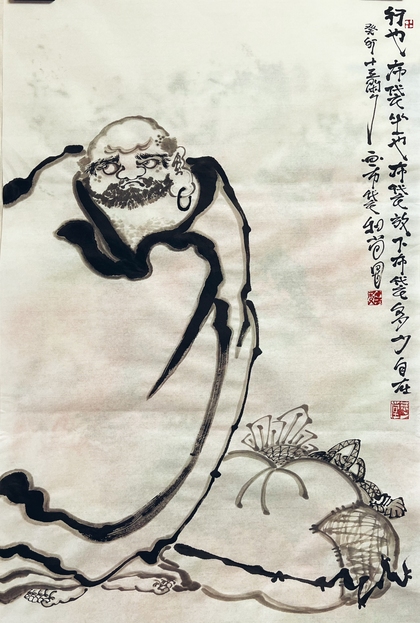 行也布袋坐也布袋放下布袋多少自在
癸卯十三
画布袋和尚